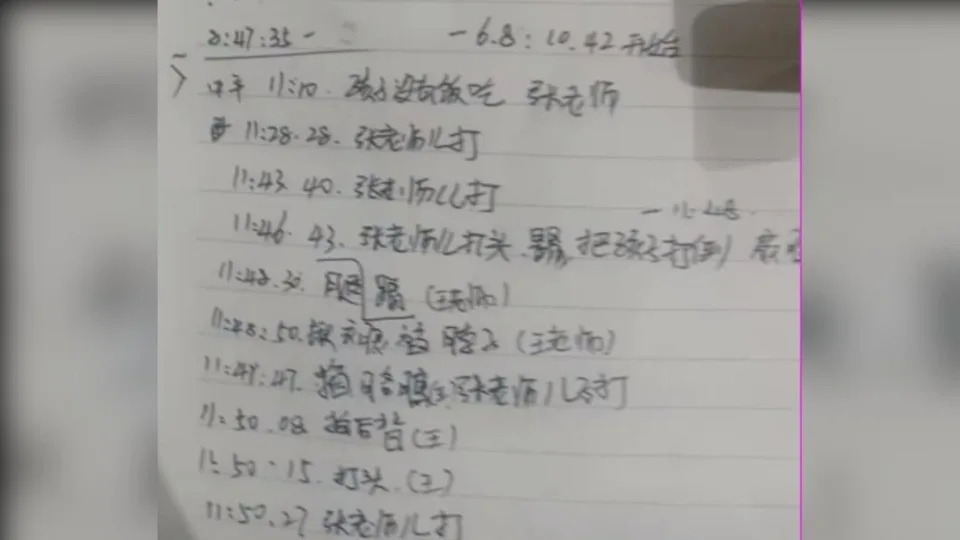 8:47:35 - - 6.8: 10.42 开始
中午 11:10. 孩子没有饭吃 张老师
11:28.28. 张老师儿打
11:43 40. 张老师儿打
- 11.48.
11:46. 43. 张老师儿打头. 把孩子打倒
11:48.30. 腿 踢 (王老师)
11:48:50. 脖子 (王老师)
11:49:47. 张老师儿子打
11:50.08 拍后背(王)
11:50:15. 打头.(王)
11:50.27 张老师儿打